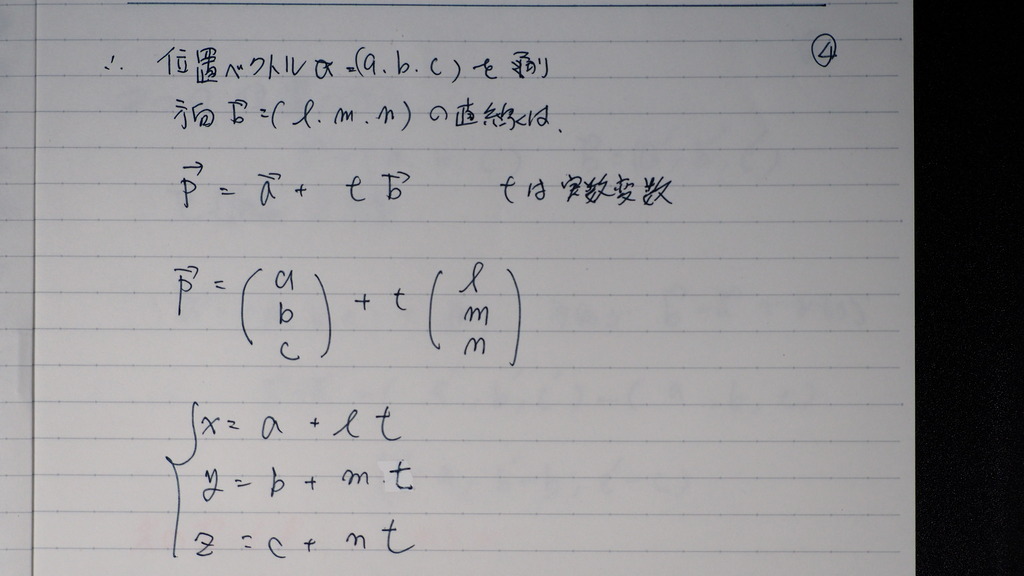 ④
∴ 位置ベクトル a=(a.b.c) を通り
方向 b⃗=(l.m.n) の直線は、
p⃗ = a⃗ + t b⃗ tは実数変数
p⃗ = (a b c) + t (l m n)
{x= a + l t
y = b + m t
z = c + n t